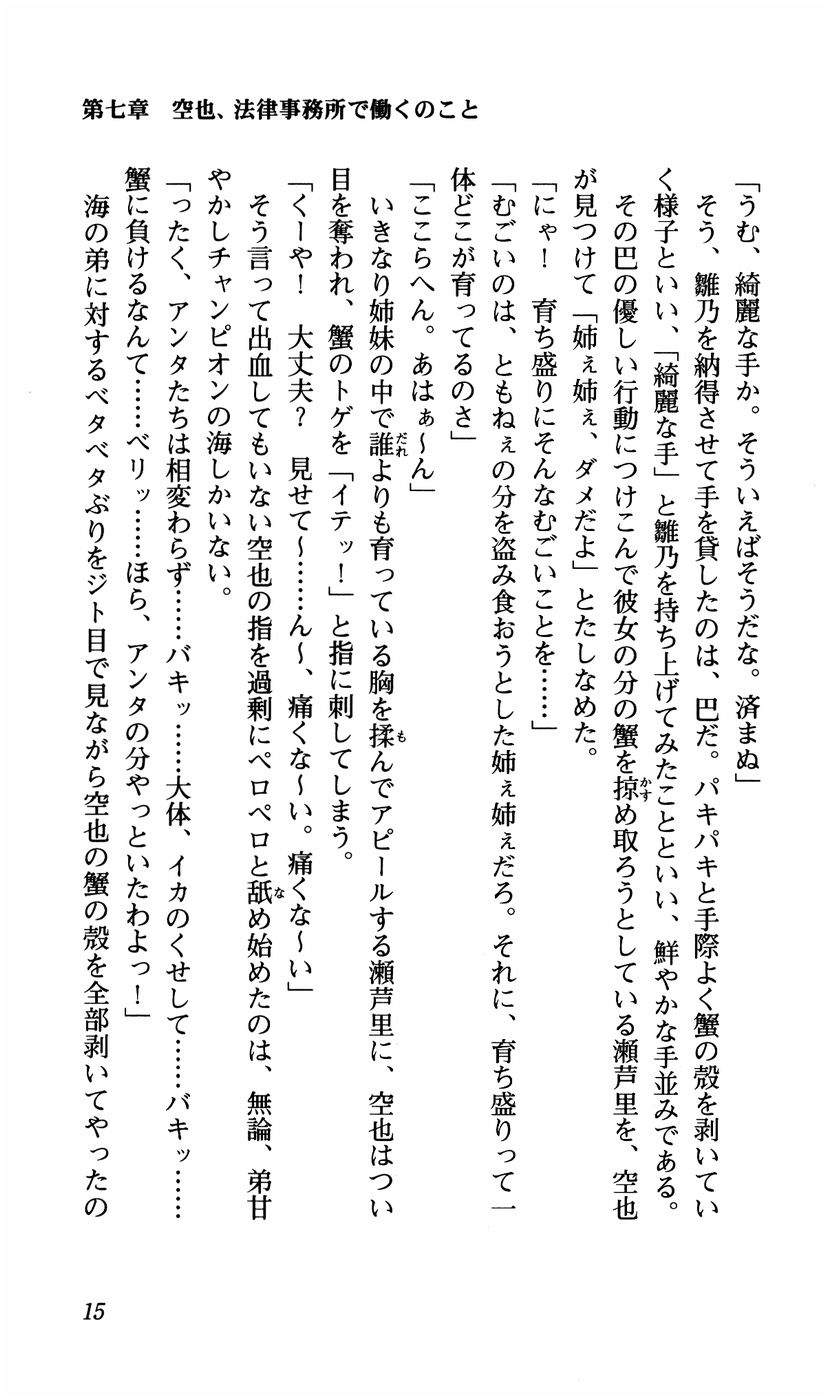 第七章　空也、法律事務所で働くのこと
「うむ、綺麗な手か。そういえばそうだな。済まぬ」
そう、雛乃を納得させて手を貸したのは、巴だ。パキパキと手際よく蟹の殻を剥いてい
く様子といい、「綺麗な手」と雛乃を持ち上げてみたことといい、鮮やかな手並みである。
その巴の優しい行動につけこんで彼女の分の蟹を掠め取ろうとしている瀬芦里を、空也
が見つけて「姉ぇ姉ぇ、ダメだよ」とたしなめた。
「にゃ！　育ち盛りにそんなむごいことを……」
「むごいのは、ともねぇの分を盗み食おうとした姉ぇ姉ぇだろ。それに、育ち盛りって一
体どこが育ってるのさ」
「ここらへん。あはぁ～ん」
いきなり姉妹の中で誰よりも育っている胸を揉んでアピールする瀬芦里に、空也はつい
目を奪われ、蟹のトゲを「イテッ！」と指に刺してしまう。
「くーや！　大丈夫？　見せて～……ん～、痛くな～い。痛くな～い」
そう言って出血してもいない空也の指を過剰にペロペロと舐め始めたのは、無論、弟甘
やかしチャンピオンの海しかいない。
「ったく、アンタたちは相変わらず……バキッ……大体、イカのくせして……バキッ……
蟹に負けるなんて……ベリッ……ほら、アンタの分やっといたわよっ！」
海の弟に対するベタベタぶりをジト目で見ながら空也の蟹の殻を全部剥いてやったの
15